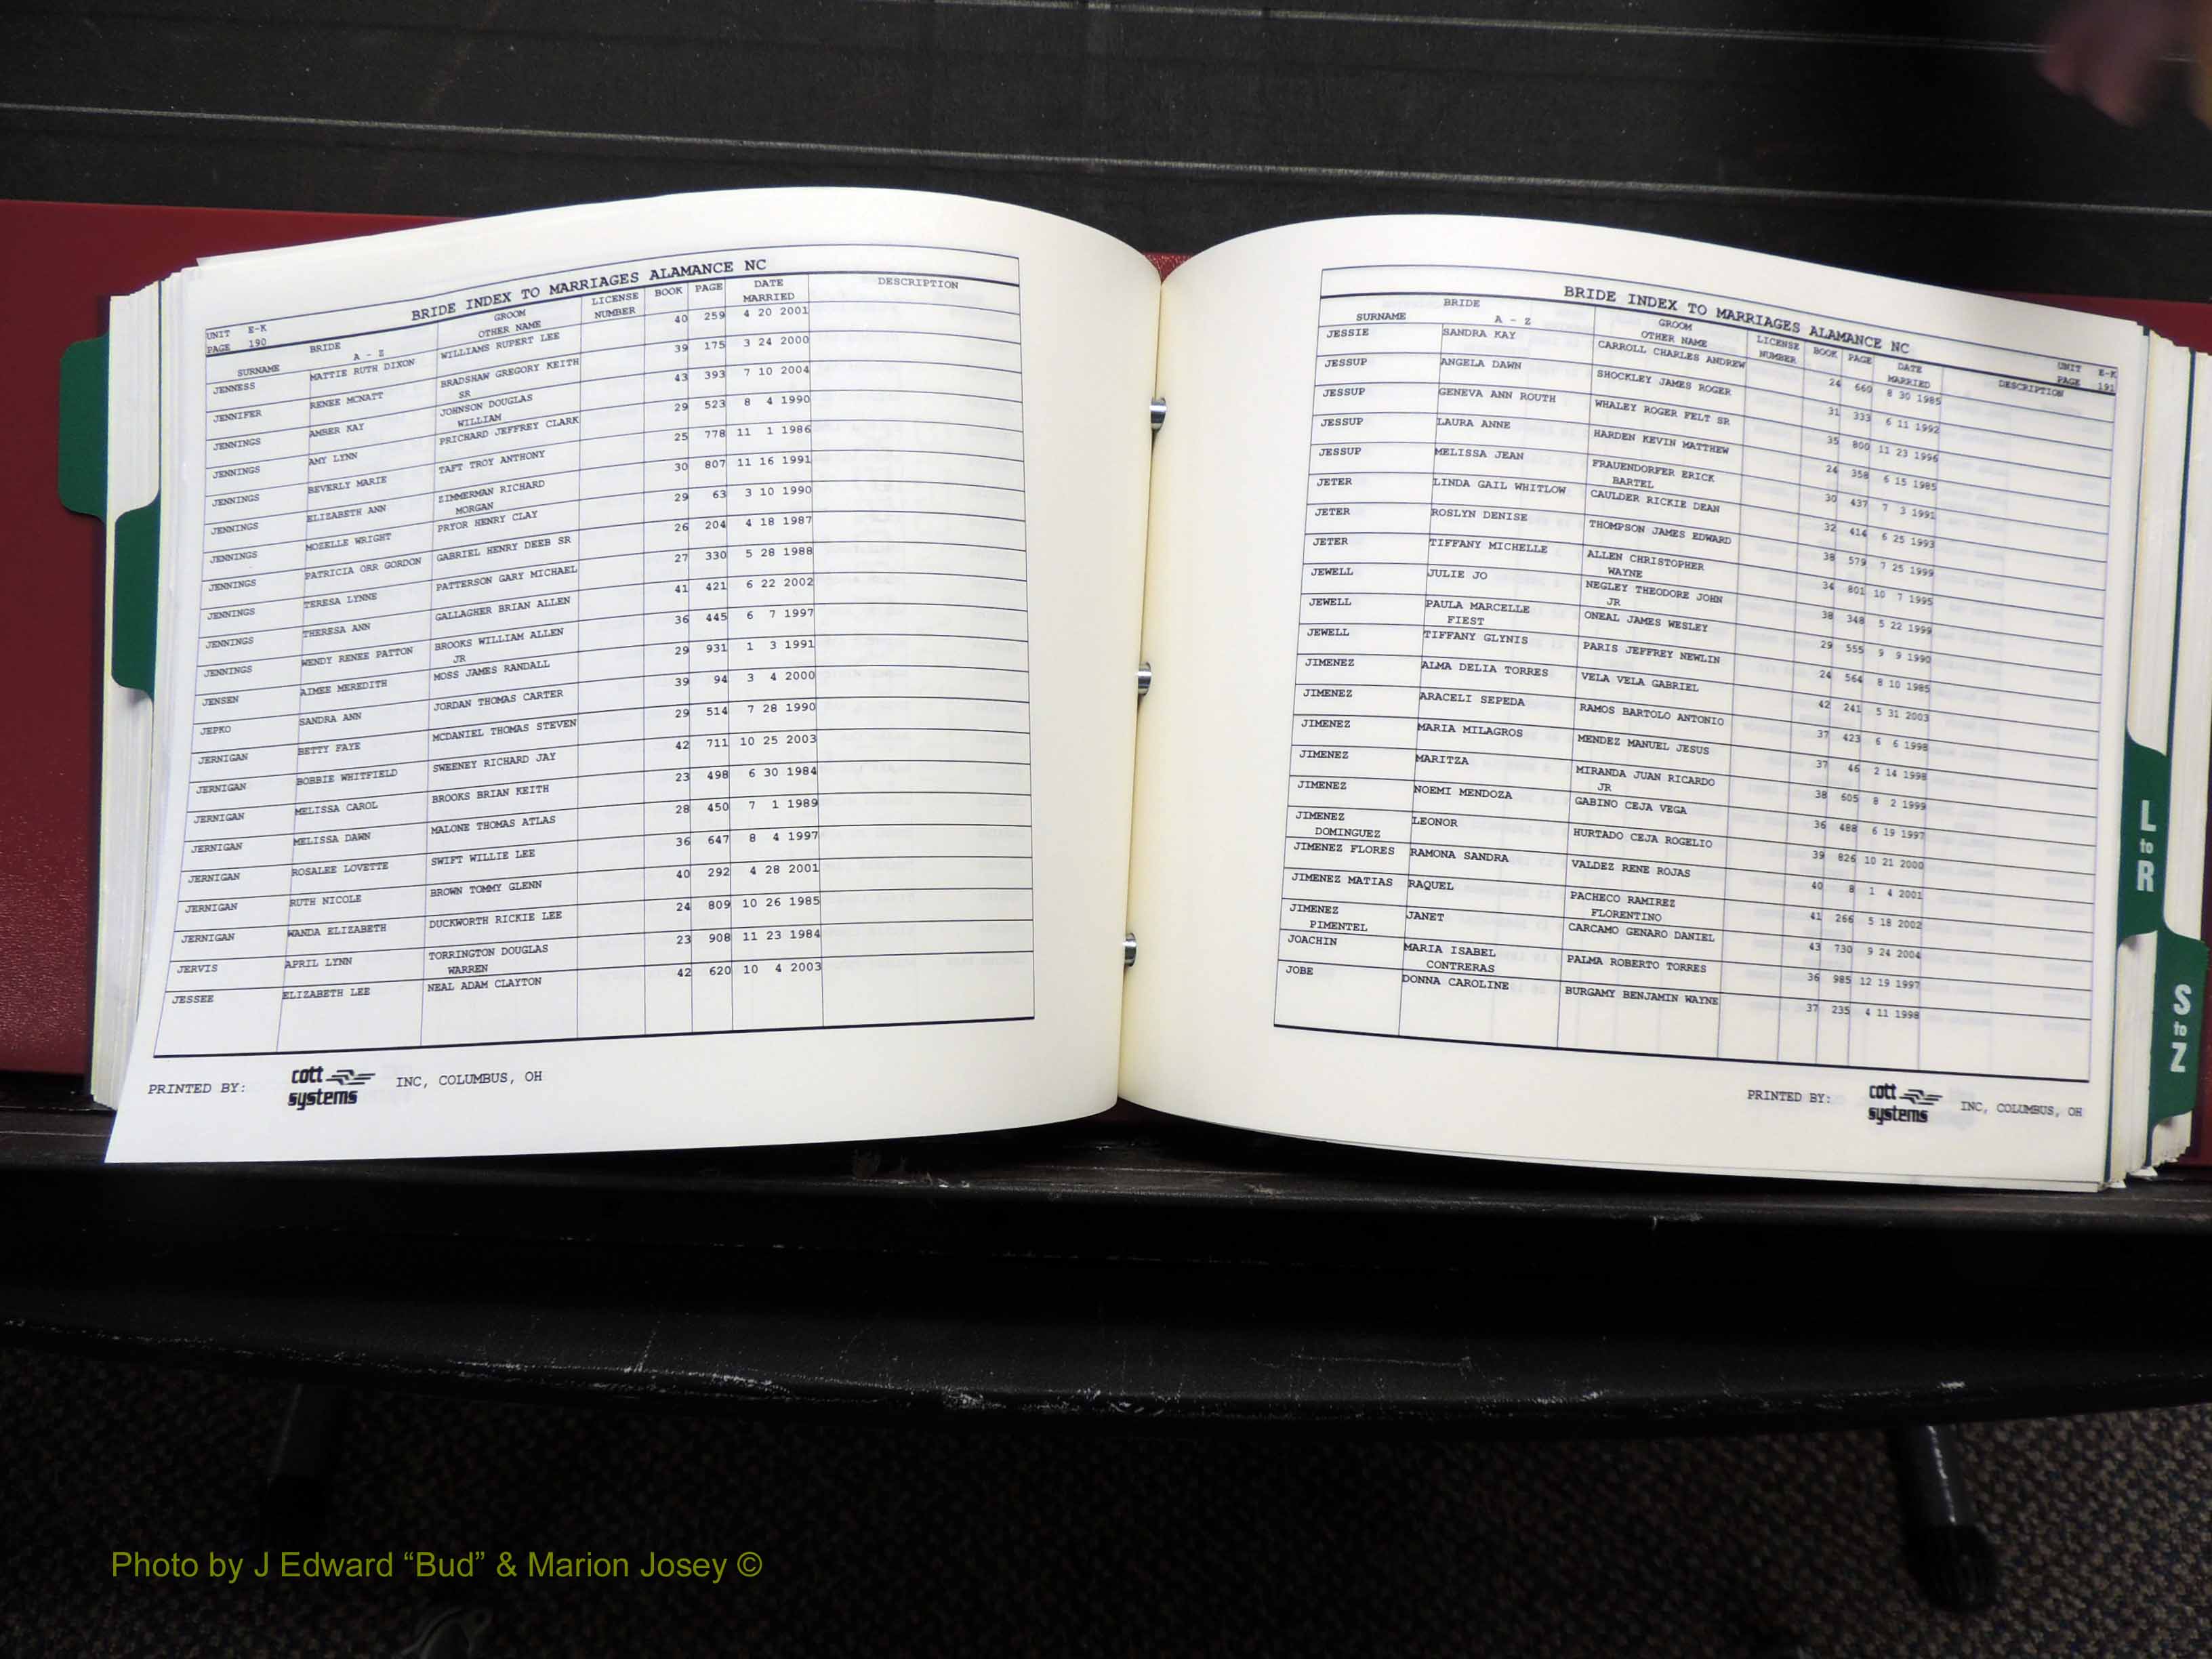 BRIDE INDEX TO MARRIAGES ALAMANCE NC
UNIT E-K
PAGE 190
SURNAME BRIDE A - Z GROOM OTHER NAME LICENSE NUMBER BOOK PAGE DATE MARRIED DESCRIPTION
JENNESS MATTIE RUTH DIXON WILLIAMS RUPERT LEE 40 259 4 20 2001
JENNIFER RENEE MCNATT BRADSHAW GREGORY KEITH 39 175 3 24 2000
SR
JENNINGS AMBER KAY JOHNSON DOUGLAS 43 393 7 10 2004
WILLIAM
JENNINGS AMY LYNN PRICHARD JEFFREY CLARK 29 523 8 4 1990
JENNINGS BEVERLY MARIE TAFT TROY ANTHONY 25 778 11 1 1986
JENNINGS ELIZABETH ANN ZIMMERMAN RICHARD 30 807 11 16 1991
MORGAN
JENNINGS MOZELLE WRIGHT PRYOR HENRY CLAY 29 63 3 10 1990
JENNINGS PATRICIA ORR GORDON GABRIEL HENRY DEEB SR 26 204 4 18 1987
JENNINGS TERESA LYNNE PATTERSON GARY MICHAEL 27 330 5 28 1988
JENNINGS THERESA ANN GALLAGHER BRIAN ALLEN 41 421 6 22 2002
JENNINGS WENDY RENEE PATTON BROOKS WILLIAM ALLEN 36 445 6 7 1997
JR
JENSEN AIMEE MEREDITH MOSS JAMES RANDALL 29 931 1 3 1991
JEPKO SANDRA ANN JORDAN THOMAS CARTER 39 94 3 4 2000
JERNIGAN BETTY FAYE MCDANIEL THOMAS STEVEN 29 514 7 28 1990
JERNIGAN BOBBIE WHITFIELD SWEENEY RICHARD JAY 42 711 10 25 2003
JERNIGAN MELISSA CAROL BROOKS BRIAN KEITH 23 498 6 30 1984
JERNIGAN MELISSA DAWN MALONE THOMAS ATLAS 28 450 7 1 1989
JERNIGAN ROSALEE LOVETTE SWIFT WILLIE LEE 36 647 8 4 1997
JERNIGAN RUTH NICOLE BROWN TOMMY GLENN 40 292 4 28 2001
JERNIGAN WANDA ELIZABETH DUCKWORTH RICKIE LEE 24 809 10 26 1985
JERVIS APRIL LYNN TORRINGTON DOUGLAS 23 908 11 23 1984
WARREN
JESSEE ELIZABETH LEE NEAL ADAM CLAYTON 42 620 10 4 2003
PRINTED BY: cott systems INC, COLUMBUS, OH
BRIDE INDEX TO MARRIAGES ALAMANCE NC
UNIT E-K
PAGE 191
SURNAME BRIDE A - Z GROOM OTHER NAME LICENSE NUMBER BOOK PAGE DATE MARRIED DESCRIPTION
JESSIE SANDRA KAY CARROLL CHARLES ANDREW 24 660 8 30 1985
JESSUP ANGELA DAWN SHOCKLEY JAMES ROGER 31 333 6 11 1992
JESSUP GENEVA ANN ROUTH WHALEY ROGER FELT SR 35 800 11 23 1996
JESSUP LAURA ANNE HARDEN KEVIN MATTHEW 24 358 6 15 1985
JESSUP MELISSA JEAN FRAUENDORFER ERICK 30 437 7 3 1991
BARTEL
JETER LINDA GAIL WHITLOW CAULDER RICKIE DEAN 32 414 6 25 1993
JETER ROSLYN DENISE THOMPSON JAMES EDWARD 38 579 7 25 1999
JETER TIFFANY MICHELLE ALLEN CHRISTOPHER 34 801 10 7 1995
WAYNE
JEWELL JULIE JO NEGLEY THEODORE JOHN 38 348 5 22 1999
JR
JEWELL PAULA MARCELLE ONEAL JAMES WESLEY 29 555 9 9 1990
FIEST
JEWELL TIFFANY GLYNIS PARIS JEFFREY NEWLIN 24 564 8 10 1985
JIMENEZ ALMA DELIA TORRES VELA VELA GABRIEL 42 241 5 31 2003
JIMENEZ ARACELI SEPEDA RAMOS BARTOLO ANTONIO 37 423 6 6 1998
JIMENEZ MARIA MILAGROS MENDEZ MANUEL JESUS 37 46 2 14 1998
JIMENEZ MARITZA MIRANDA JUAN RICARDO 38 605 8 2 1999
JR
JIMENEZ NOEMI MENDOZA GABINO CEJA VEGA 36 488 6 19 1997
JIMENEZ LEONOR HURTADO CEJA ROGELIO 39 826 10 21 2000
DOMINGUEZ
JIMENEZ FLORES RAMONA SANDRA VALDEZ RENE ROJAS 40 8 1 4 2001
JIMENEZ MATIAS RAQUEL PACHECO RAMIREZ 41 266 5 18 2002
FLORENTINO
JIMENEZ JANET CARCAMO GENARO DANIEL 43 730 9 24 2004
PIMENTEL
JOACHIN MARIA ISABEL PALMA ROBERTO TORRES 36 985 12 19 1997
CONTRERAS
JOBE DONNA CAROLINE BURGAMY BENJAMIN WAYNE 37 235 4 11 1998
PRINTED BY: cott systems INC, COLUMBUS, OH
L to R
S to Z
Photo by J Edward “Bud” & Marion Josey ©